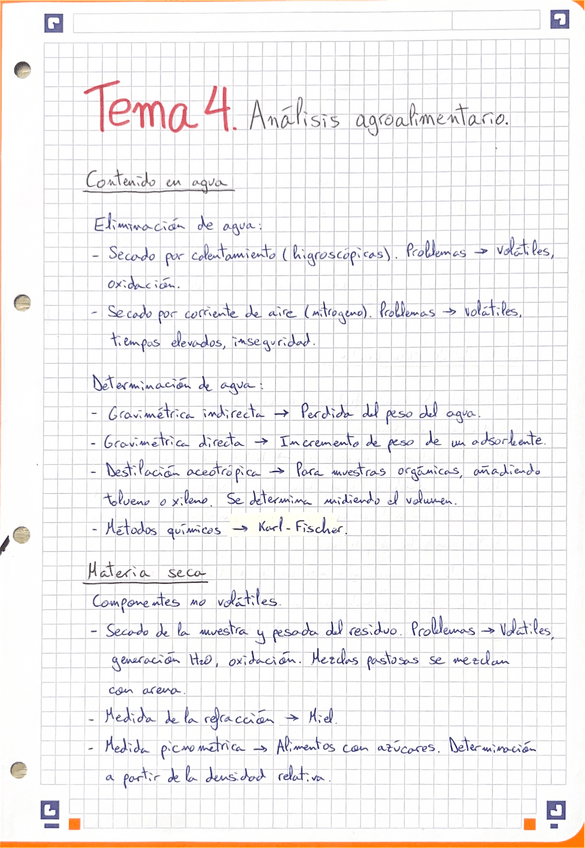 Tema 4. Análisis agroalimentario.
Contenido en agua
Eliminación de agua:
- Secado por calentamiento (higroscópicas). Problemas → volátiles,
oxidación.
- Secado por corriente de aire (nitrogeno). Problemas → volátiles,
tiempos elevados, inseguridad.
Determinación de agua:
- Gravimétrica indirecta → Perdida del peso del agua.
- Gravimétrica directa → Incremento de peso de un adsorbente.
- Destilación aceotrópica → Para muestras orgánicas, añadiendo
tolueno o xileno. Se determina midiendo el volumen.
- Métodos químicos → Karl-Fischer.
Materia seca
Componentes no volátiles.
- Secado de la muestra y pesada del residuo. Problemas → Volátiles,
generación H2O, oxidación. Mezclas pastosas se mezclan
con arena.
- Medida de la refracción → Miel.
- Medida picnométrica → Alimentos con azúcares. Determinación
a partir de la densidad relativa.